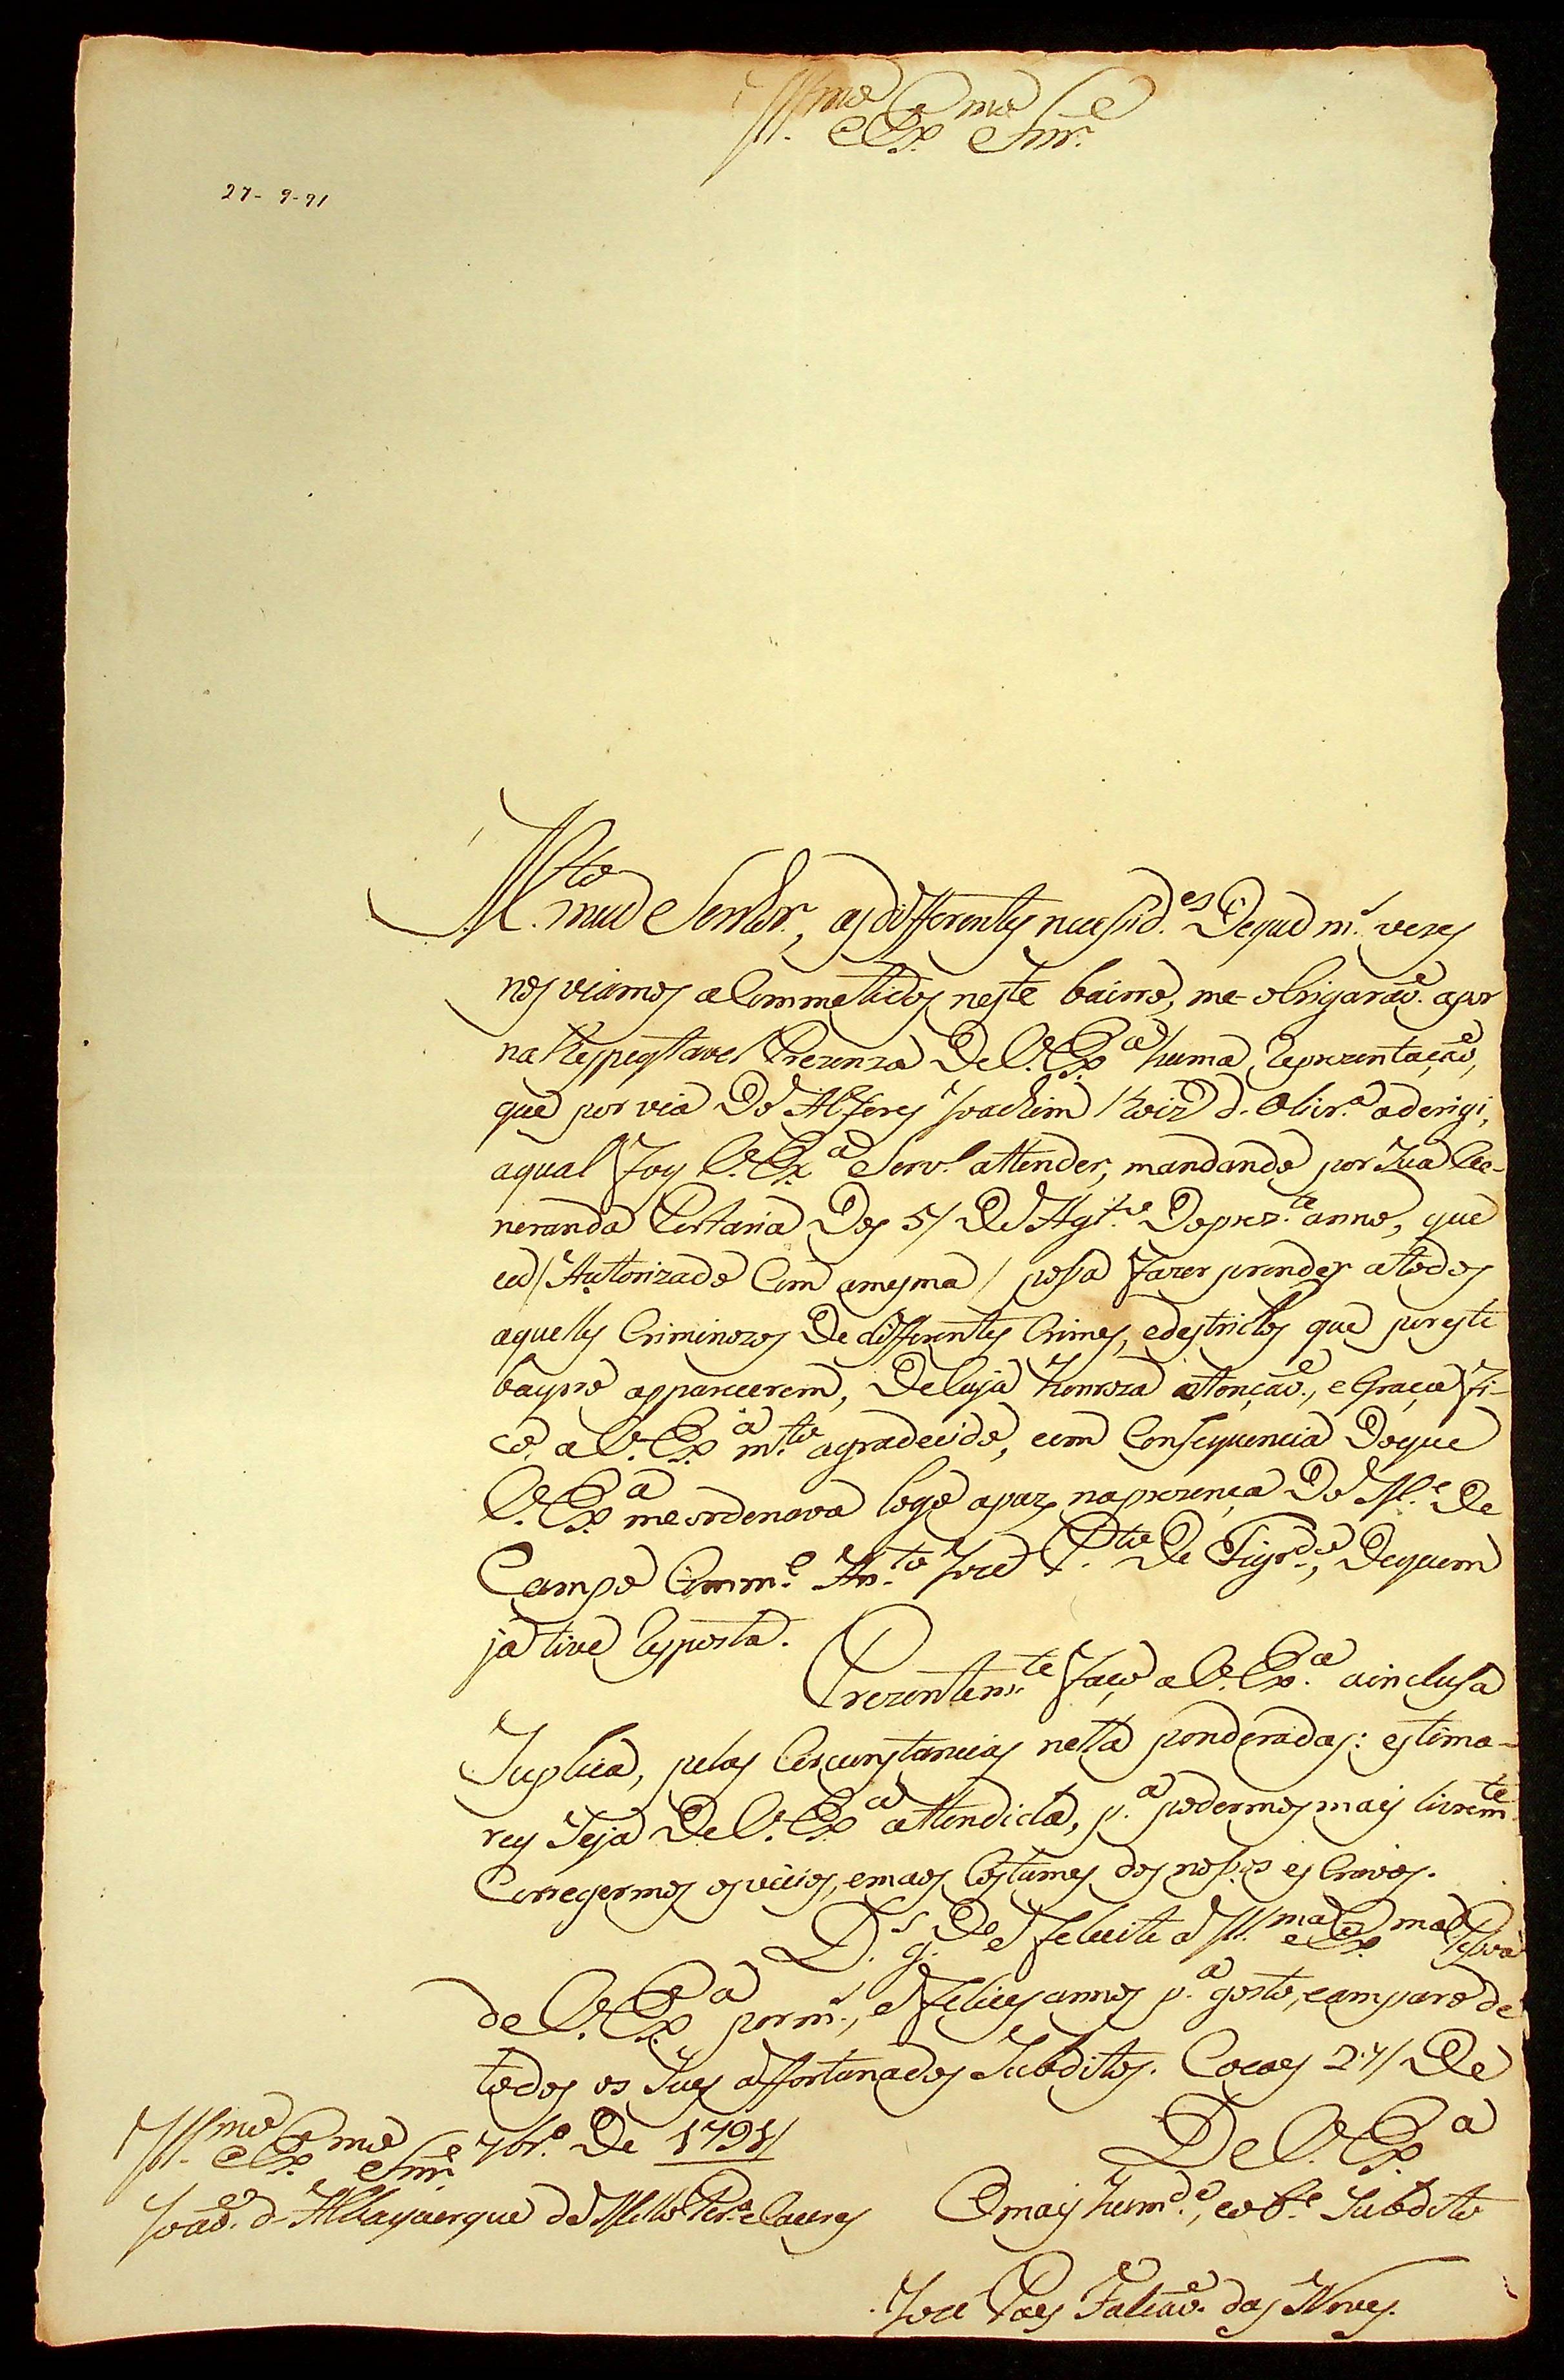 Ill.mo e Ex.mo Snr.e
27- 9-91
M.to meu Senhor, as differentes necessid.es Deque m.s vezes
nos viamos acommetidos neste bairro, me obrigaraõ. apor
na Respeqtavel Prezenza De V. Ex.a huma Reprezentação,
que por via Do Alferes Joachim Roiz d. Olivr.a aderigi,
aqual Foy V. Ex.a Serv.o attender, mandando por Sua Ve-
neranda Portaria Dos 5/ De Agt.o Doprez.te anno, que
eu/ Autorizado Com amesma / possa Fazer prender atodos
aquelles Criminozos De differentes Crimes, edestrictos que poreste
bayrro apparecerem, DeCuja honroza attençaõ., eGraça Fi-
co, a V. Ex.a m.to agradecido, eem Consequencia Doque
V. Ex.a me ordenava logo apuz naprezença Do M.e De
Campo Comm.e An.to Joze P.to De Figr.do, Dequem
já tive Resposta.
Prezentem.te Faço a V. Ex.a ainclusa
Suplica, pelas Circunstancias nella ponderadas: estima-
rey Seja De V. Ex.a attendida, p.a podermos mais livrem.te
Corregermos osvicios, emaos Costumes dos nossos esCravos.
D.s g.De e Felicite a Ill.ma e Ex.ma Pessoa
de V. Ex.a por m.s, e Felices annos p.a gosto, eamparo de
todos os Sues affortunados Subditos. Cocaes 27/ De
7br.o De 1791/
De V. Ex.a
Ill.mo e Ex.mo Snr.e
Joaõ. d' Albuquerque de Mello Per.a e Caceres
Omais hum.de, eob.e Subdito
Joze Paes Falcaõ. das Neves.